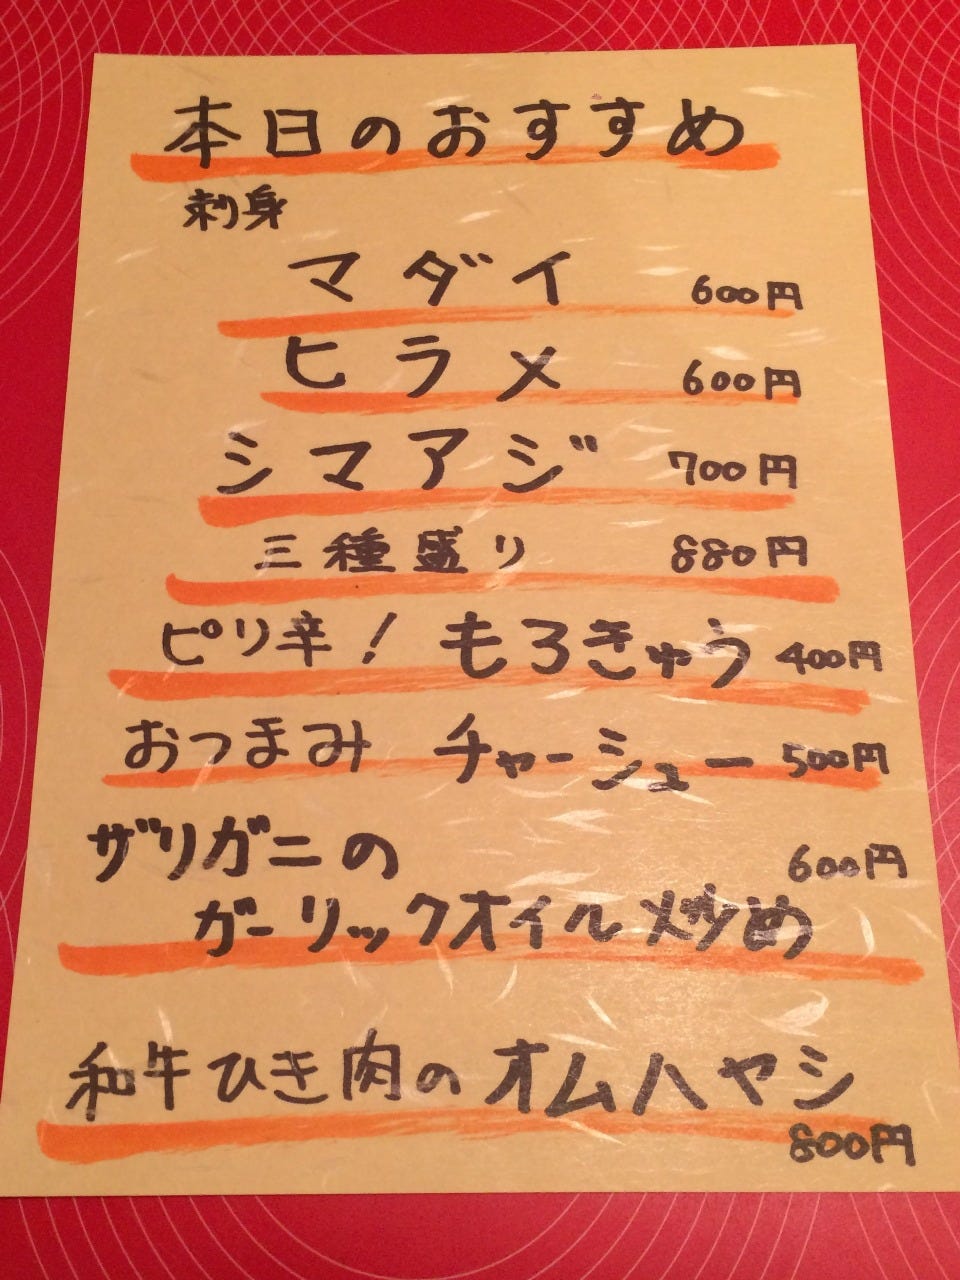 本日のおすすめ
刺身
マダイ 600円
ヒラメ 600円
シマアジ 700円
三種盛り 880円
ピリ辛！もろきゅう 400円
おつまみ チャーシュー 500円
ザリガニの 600円
ガーリックオイル炒め
和牛ひき肉のオムハヤシ
800円